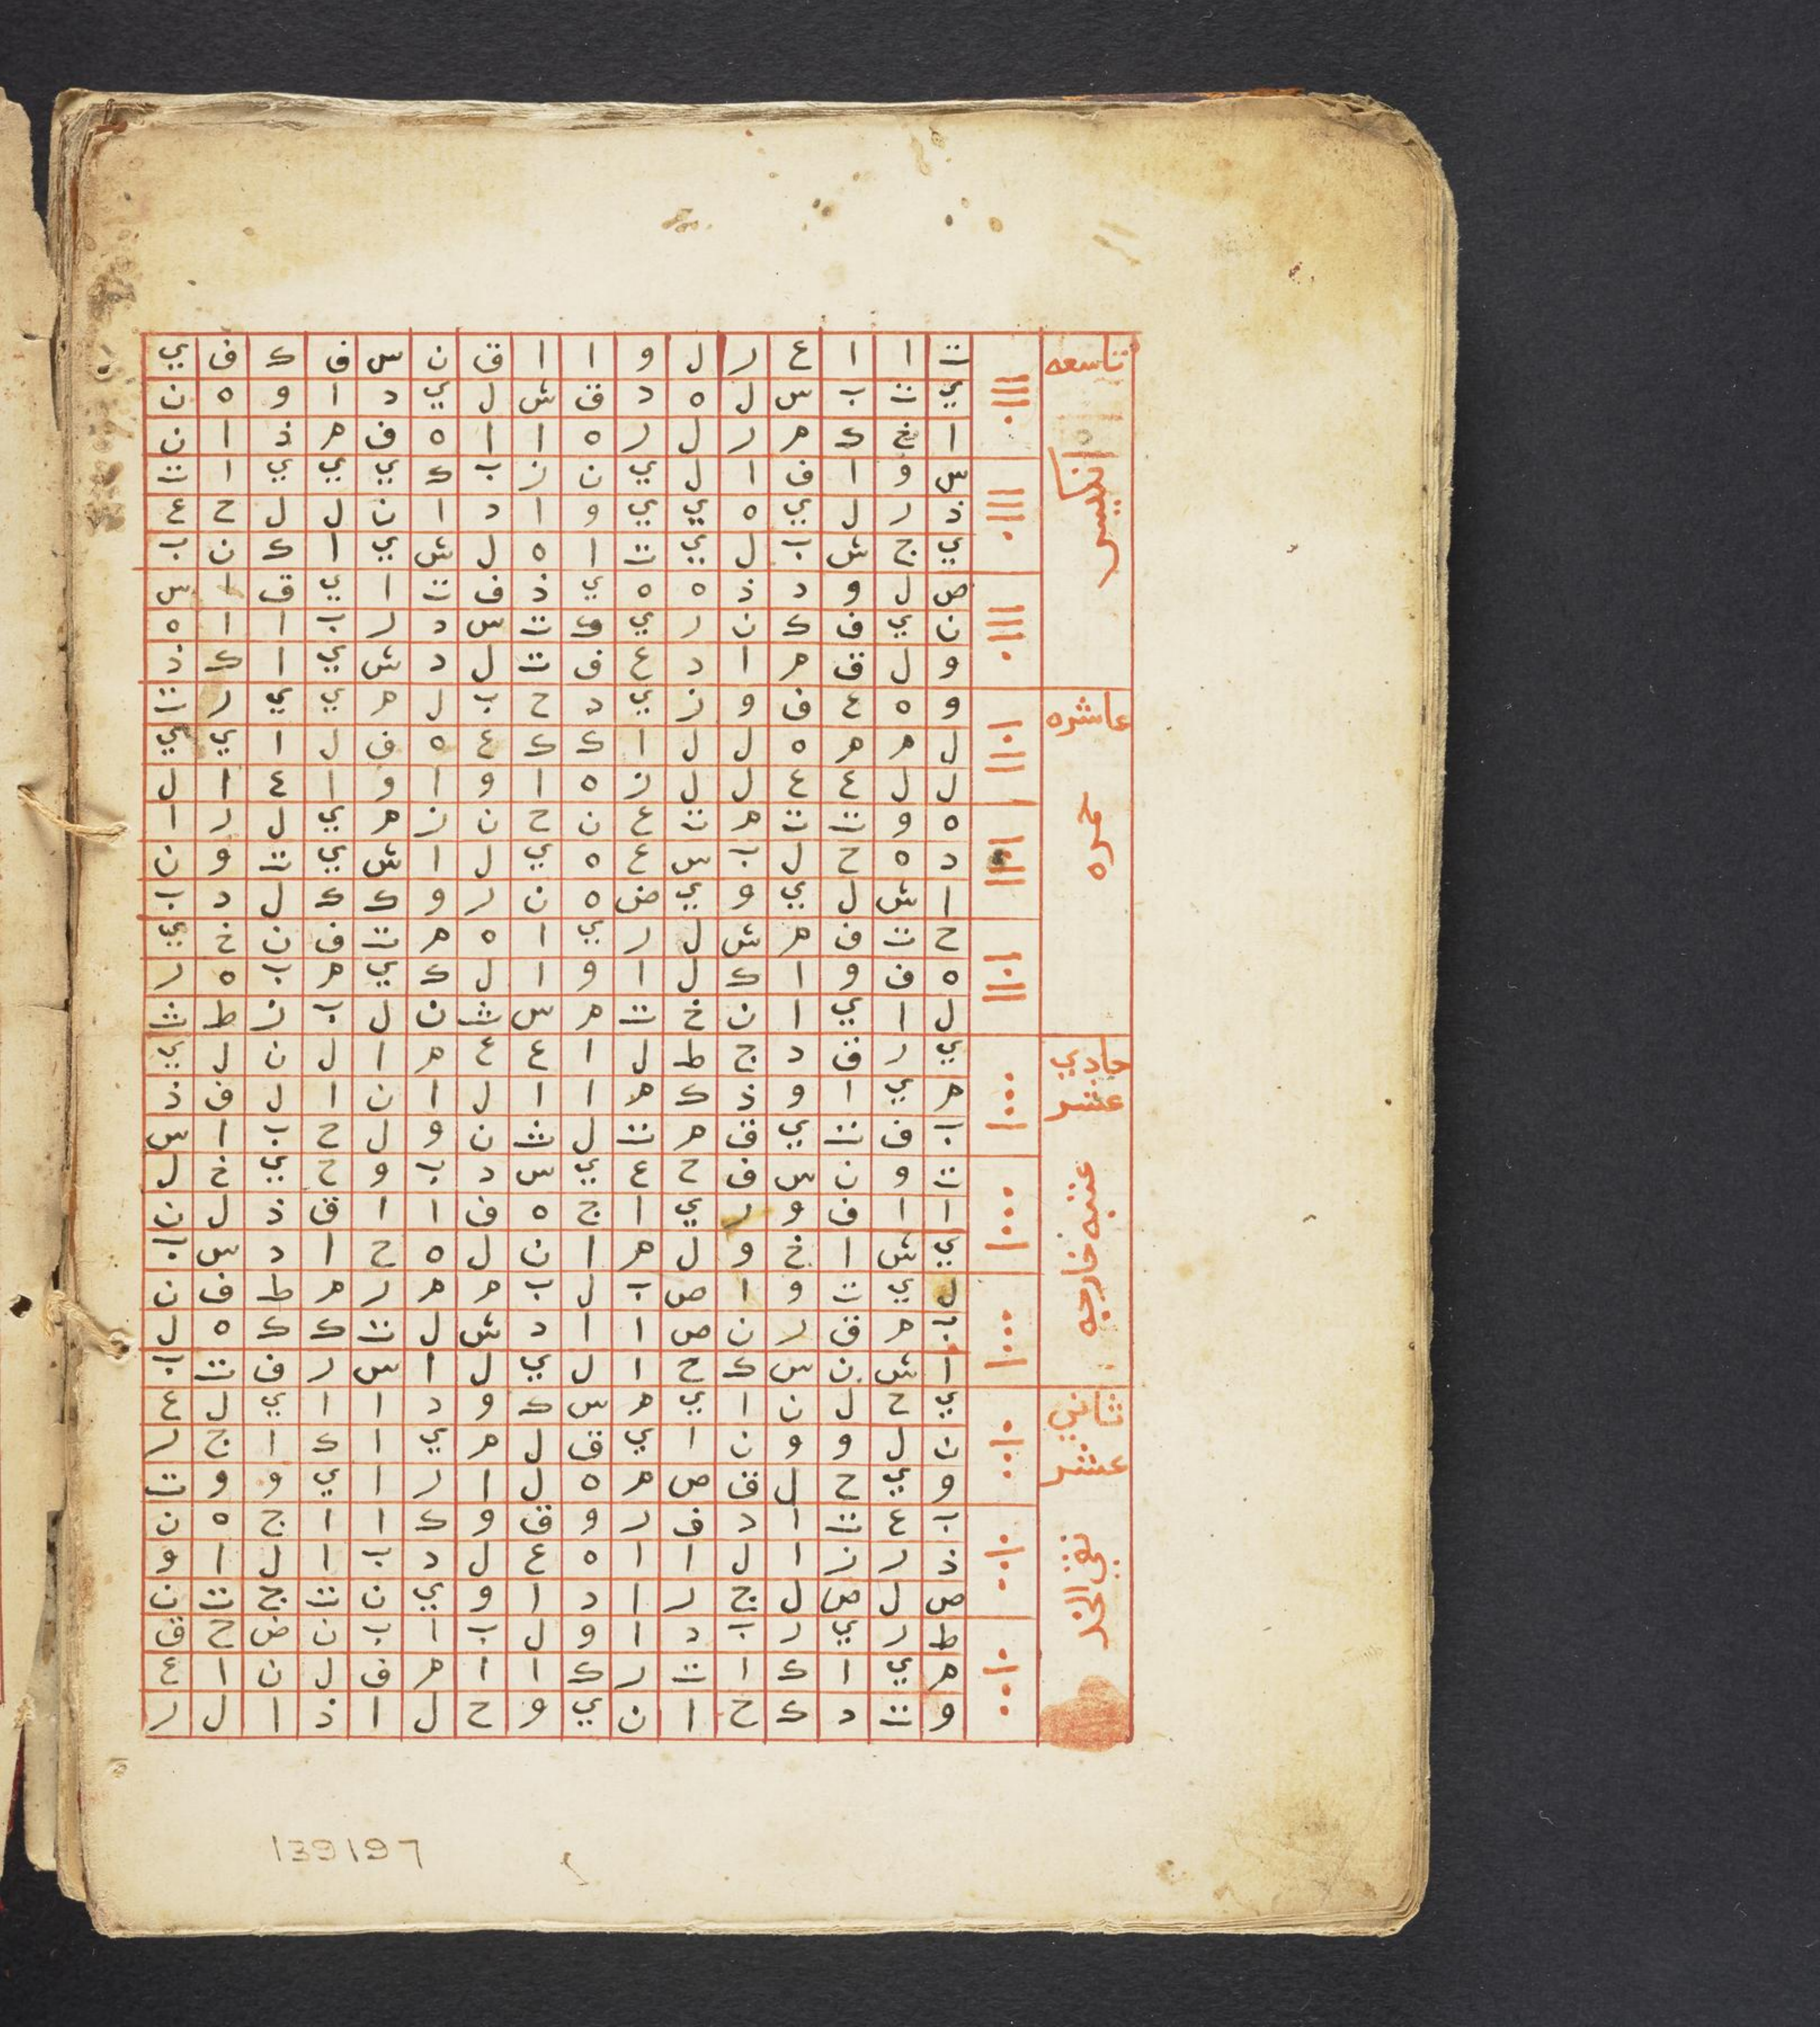 تاسعه
انكيس
عاشره
حمره
حادي
عشر
عتبه خارجه
ثاني
عشر
نقي الخد
ت ا ا ع ر ل و ا ا ق ن س ف ك ف ي
ي ت ب س ل ه د ق ش ل ي د ا و ه ن
ا خ ك م ر ل ر ه ا ا ه ف م ذ ا ن
س و ا ف ا ل ي ن ز ب ك ي ي ي ا ت
ذ ر ل ي ه ي ي و ا د ا ن ل ل ح ع
ي ج ش ب ل ي ت ا ه ل ش ي ا ك ن ب
ص ل و د ذ ه ه ي ذ ف ت ا ي ق ا س
ن ي ف ك ن ر ي ت س د ر ب ا ا ه
و ل ق م ا د ع ف ت ل د ش ي ا ك ذ
و ه ع ف و ز ي د ح ب ل م ي ي ر ت
ل م م ه ل ل ا ك ك ع ه ف ل ا ي ي
ل ل ع ع ل ل ز ه ا و ا و ا ع ا ل
ه و ت ت م ت ع ن ح ن ز م ي ل ر ا
د ه ح ل ب س ع ه ي ل ا ش ي ت و ن
ا ش ل ي و ي ض ه ن ر و ك ك ل د ب
ح ت ف م ش ل ر ي ا ه م ت ف ن خ ي
ه ف و ا ك ل ا و ا ل ك ي م ب ه ر
ل ا ي ا ن خ ت م س ث ن ل ب ز ط ث
ي ر ق د ج ط ل ا ع ع م ا ل ن ل ي
م ي ا و ذ ك م ا ا ل ا ن ا ل ف ذ
ب ف ت ي ق م ت ل ث ن و ل ح ب ا س
ت و ن س ف ح ع ي س د ب و ح ي خ ل
ا ا ف و ر ي ا ج ه ف ا ا ق ذ ل ن
ي ش ا خ و ل م ا ن ل ه ح ا د س ب
ل ي ت و ا ص ب ل ب م م ر م ط ف ن
ب م ق ر ن ص ا ا د ش ل ت ك ك ه ل
ا ش ن س ك ح ا ل ي ل ا س ر ف ث ب
ي ح ل ن ا ي م س ك و د ا ا ي ل ع
ن ل و و ن ا ي ق ل م ي ا ك ا ج ر
و ي ح ل ق ص م ه ل ا ر ا ي و و ت
ب ع ت ا د ف ر و ق و ك ا ا ج ه ن
ذ ر ز ا ل ا ا ه ع ل د ب ا ل ا و
ص ل ص ل ج ر ا د ا و ي ن ث ج ت ن
ط ر ي ر ب د ا و ل ب ا ب ن ض ح ق
م ي ا ك ا ت ر ك ا ا م ف ل ن ا ع
و ت د ك ح ا ن ي و ح ل ا ذ ا ل ر
139197